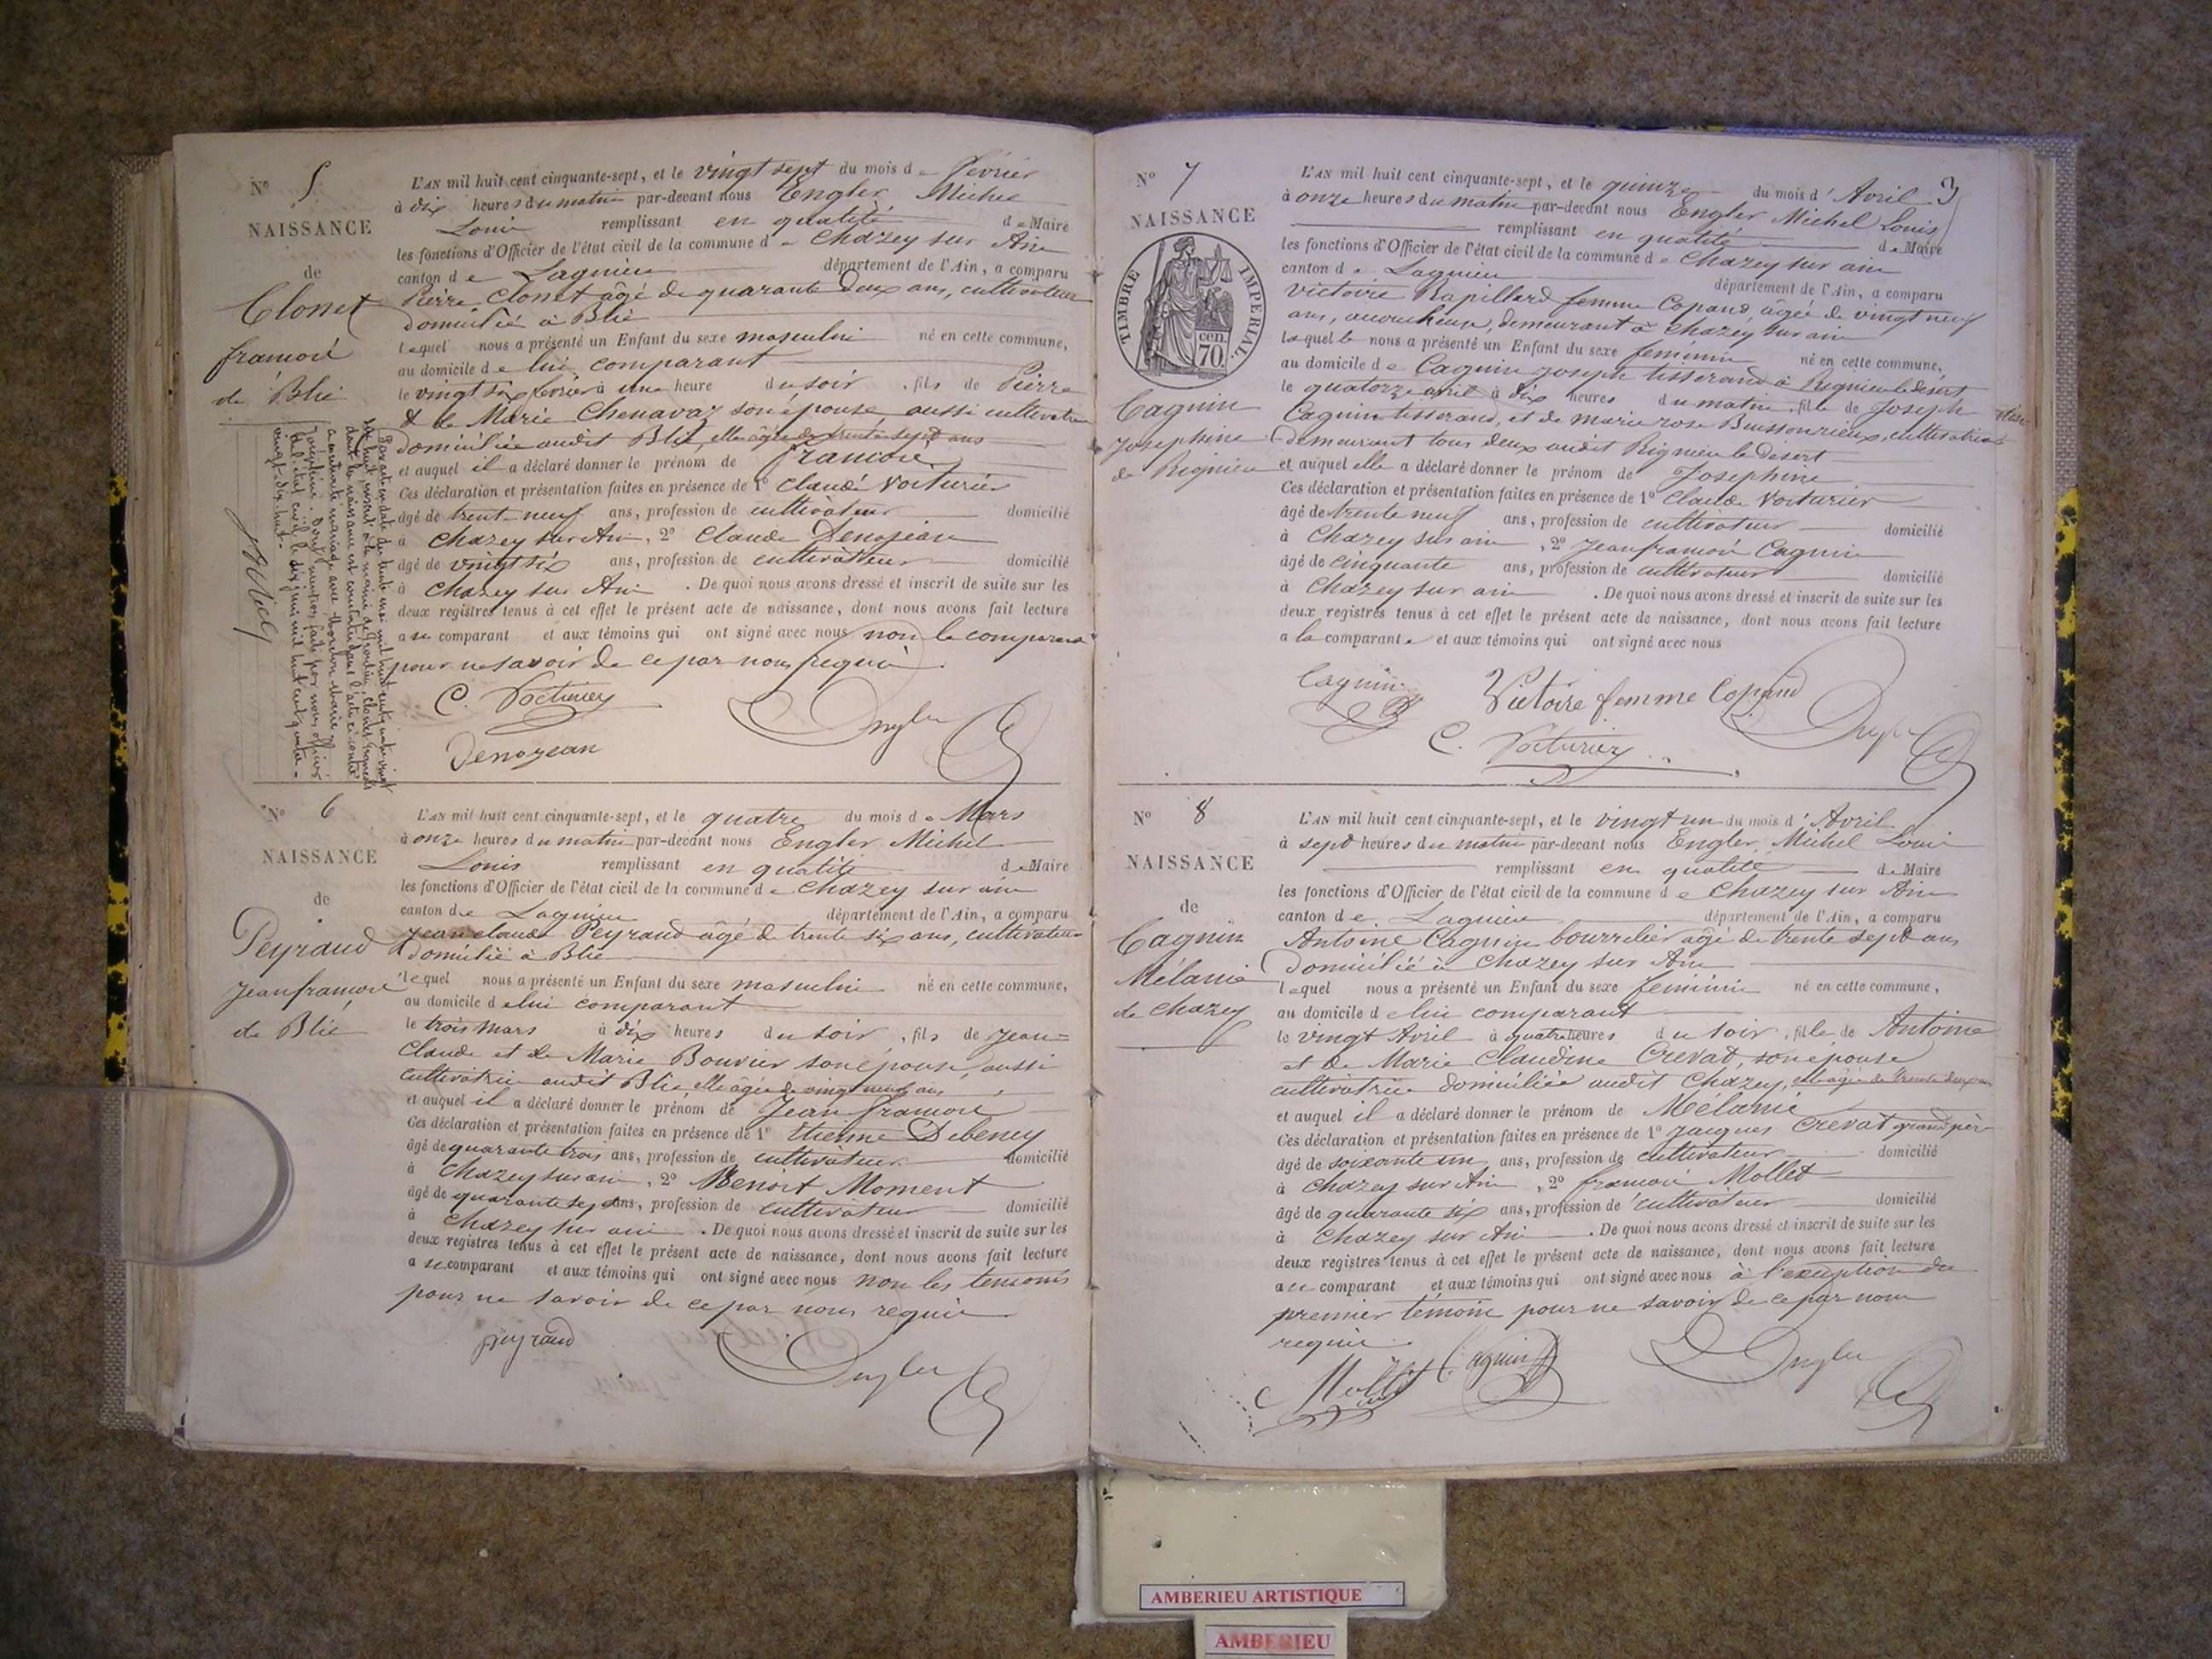 N° 5
NAISSANCE
de
Clonet
françois
de Blié
L'AN mil huit cent cinquante-sept, et le vingt sept du mois de février
à dix heures du matin par-devant nous Engler Michel
Louis remplissant en qualité de Maire
les fonctions d'Officier de l'état civil de la commune de Chazey sur Ain
canton de Lagnieu département de l'Ain, a comparu
Pierre Clonet âgé de quarante deux ans, cultivateur
domicilié à Blié
lequel nous a présenté un Enfant du sexe masculin né en cette commune,
au domicile de lui comparant
le vingt six février à une heure du soir, fils de Pierre
& de Marie Chenavaz son épouse aussi cultivatrice
domiciliée audit Blié, elle âgée de trente sept ans
et auquel il a déclaré donner le prénom de françois
Ces déclaration et présentation faites en présence de 1° Claude Voiturier
âgé de trente-neuf ans, profession de cultivateur domicilié
à Chazey sur Ain, 2° Claude Denojean
âgé de vingt six ans, profession de cultivateur domicilié
à Chazey sur Ain. De quoi nous avons dressé et inscrit de suite sur les
deux registres tenus à cet effet le présent acte de naissance, dont nous avons fait lecture
au comparant et aux témoins qui ont signé avec nous non le comparant
pour ne savoir de ce par nous requis.
C. Voiturier Engler
Denozean
N° 6
NAISSANCE
de
Peyraud
jean françois
de Blié
L'AN mil huit cent cinquante-sept, et le quatre du mois de Mars
à onze heures du matin par-devant nous Engler Michel
Louis remplissant en qualité de Maire
les fonctions d'Officier de l'état civil de la commune de Chazey sur ain
canton de Lagnieu département de l'Ain, a comparu
jean claude Peyraud âgé de trente six ans, cultivateur
domicilié à Blié
lequel nous a présenté un Enfant du sexe masculin né en cette commune,
au domicile de lui comparant
le trois mars à dix heures du soir, fils de jean=
Claude et de Marie Bouvier son épouse, aussi
cultivatrice audit Blié, elle âgée de vingt neuf ans
et auquel il a déclaré donner le prénom de Jean françois
Ces déclaration et présentation faites en présence de 1° Etienne Debeney
âgé de quarante trois ans, profession de cultivateur domicilié
à Chazey sur ain, 2° Benoit Moment
âgé de quarante sept ans, profession de cultivateur domicilié
à Chazey sur ain. De quoi nous avons dressé et inscrit de suite sur les
deux registres tenus à cet effet le présent acte de naissance, dont nous avons fait lecture
au comparant et aux témoins qui ont signé avec nous non les temoins
pour ne savoir de ce par nous requis
peyraud Engler
3
N° 7
NAISSANCE
TIMBRE IMPERIAL
cen.
70.
Cagnin
Josephine
de Rignieu
L'AN mil huit cent cinquante-sept, et le quinze du mois d'Avril
à onze heures du matin par-devant nous Engler Michel Louis
remplissant en qualité de Maire
les fonctions d'Officier de l'état civil de la commune de Chazey sur ain
canton de Lagnieu département de l'Ain, a comparu
victoire Rapillard femme Copand, âgée de vingt neuf
ans, accoucheuse, demeurant à Chazey sur ain
laquelle nous a présenté un Enfant du sexe féminin né en cette commune,
au domicile de Cagnin joseph tisserand à Rignieu le désert
le quatorze avril à dix heures du matin, fille de Joseph
Cagnin tisserand, et de marie rose Buissonrieux, cultivatrice
demeurant tous deux audit Rignieu le désert
et auquel elle a déclaré donner le prénom de Josephine
Ces déclaration et présentation faites en présence de 1° Claude Voiturier
âgé de trente neuf ans, profession de cultivateur domicilié
à Chazey sur ain, 2° Jean françois Cagnin
âgé de cinquante ans, profession de cultivateur domicilié
à Chazey sur ain. De quoi nous avons dressé et inscrit de suite sur les
deux registres tenus à cet effet le présent acte de naissance, dont nous avons fait lecture
a la comparante et aux témoins qui ont signé avec nous
Cagnin Victoire femme Copand Engler
C. Voiturier
N° 8
NAISSANCE
de
Cagnin
Mélanie
de Chazey
L'AN mil huit cent cinquante-sept, et le vingt un du mois d'Avril
à sept heures du matin par-devant nous Engler Michel Louis
remplissant en qualité de Maire
les fonctions d'Officier de l'état civil de la commune de Chazey sur Ain
canton de Lagnieu département de l'Ain, a comparu
Antoine Cagnin bourrelier âgé de trente sept ans
domicilié à Chazey sur Ain
lequel nous a présenté un Enfant du sexe féminin né en cette commune,
au domicile de lui comparant
le vingt Avril à quatre heures du soir, fille de Antoine
et de Marie Claudine Crevat, son épouse
cultivatrice domiciliée audit Chazey, elle âgée de trente deux ans
et auquel il a déclaré donner le prénom de Mélanie
Ces déclaration et présentation faites en présence de 1° Jacques Crevat grand père
âgé de soixante un ans, profession de cultivateur domicilié
à Chazey sur Ain, 2° françois Mollet
âgé de quarante six ans, profession de cultivateur domicilié
à Chazey sur Ain. De quoi nous avons dressé et inscrit de suite sur les
deux registres tenus à cet effet le présent acte de naissance, dont nous avons fait lecture
au comparant et aux témoins qui ont signé avec nous à l'exception du
premier témoin pour ne savoir de ce par nous
requis.
Mollet Cagnin Engler
AMBERIEU ARTISTIQUE
AMBERIEU